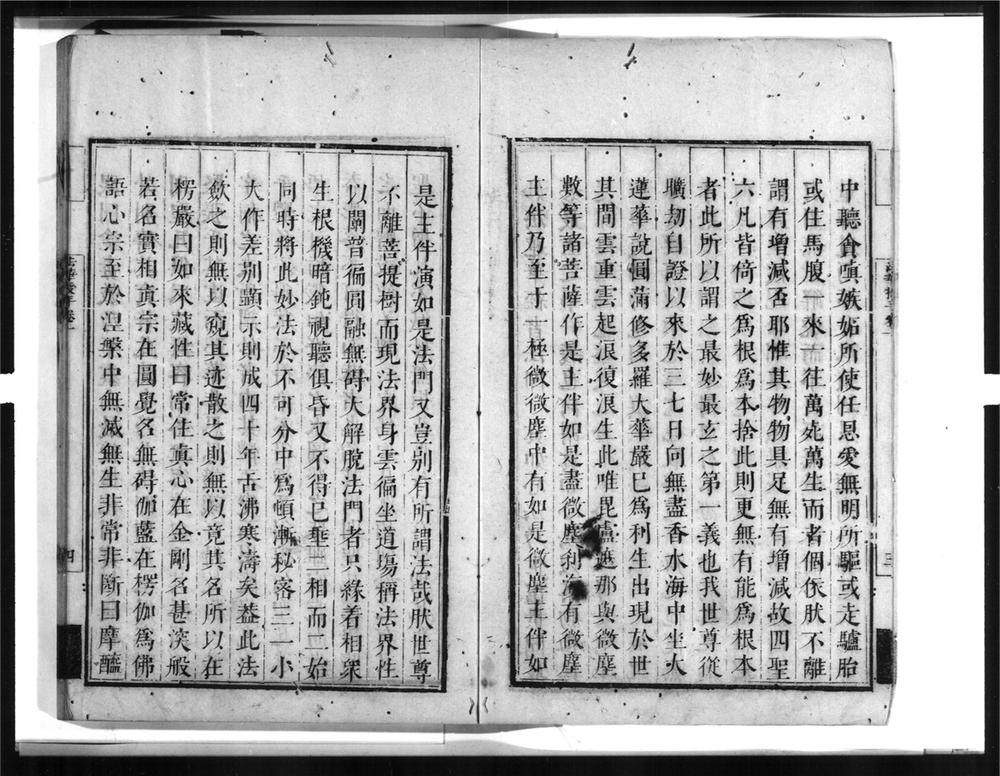 中聽貪嗔嫉妬所使任恩愛無明所驅或走驢胎
或住馬腹一來而徃萬死萬生而者個依肰不離
謂有增減否耶惟其物物具足無有增減故四聖
六凡皆倚之爲根爲本捨此則更無有能爲根本
者此所以謂之最妙最玄之第一義也我世尊從
曠劫自證以來於三七日向無盡香水海中坐大
蓮華說圓滿修多羅大華嚴已爲利生出現於世
其間雲重雲起浪復浪生此唯毘盧遮那與微塵
數等諸菩薩作是主伴如是盡微塵刹海有微塵
主伴乃至于一極微微塵中有如是微塵主伴如
三
是主伴演如是法門又豈别有所謂法哉肰世尊
不離菩提樹而現法界身雲徧坐道塲稱法界性
以闡普徧圓融無碍大解脫法門者只緣着相衆
生根機暗鈍視聽俱昏又不得已埀一相而二始
同時將此妙法於不可分中爲頓漸秘密三一小
大作差别顯示則成四十年古沸寒濤矣葢此法
斂之則無以窺其迹散之則無以竟其名所以在
楞嚴曰如來藏性曰常住眞心在金剛名甚深般
若名實相眞宗在圓覺名無碍伽藍在楞伽爲佛
語心宗至於涅槃中無滅無生非常非斷曰摩醯
四